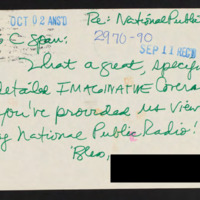 OCT 02 ANS'D Re: National Public
C Span: 2970-90
SEP 11 REC'D
What a great, specific
detailed IMAGINATIVE Covera
you've provided us view
National Public Radio!